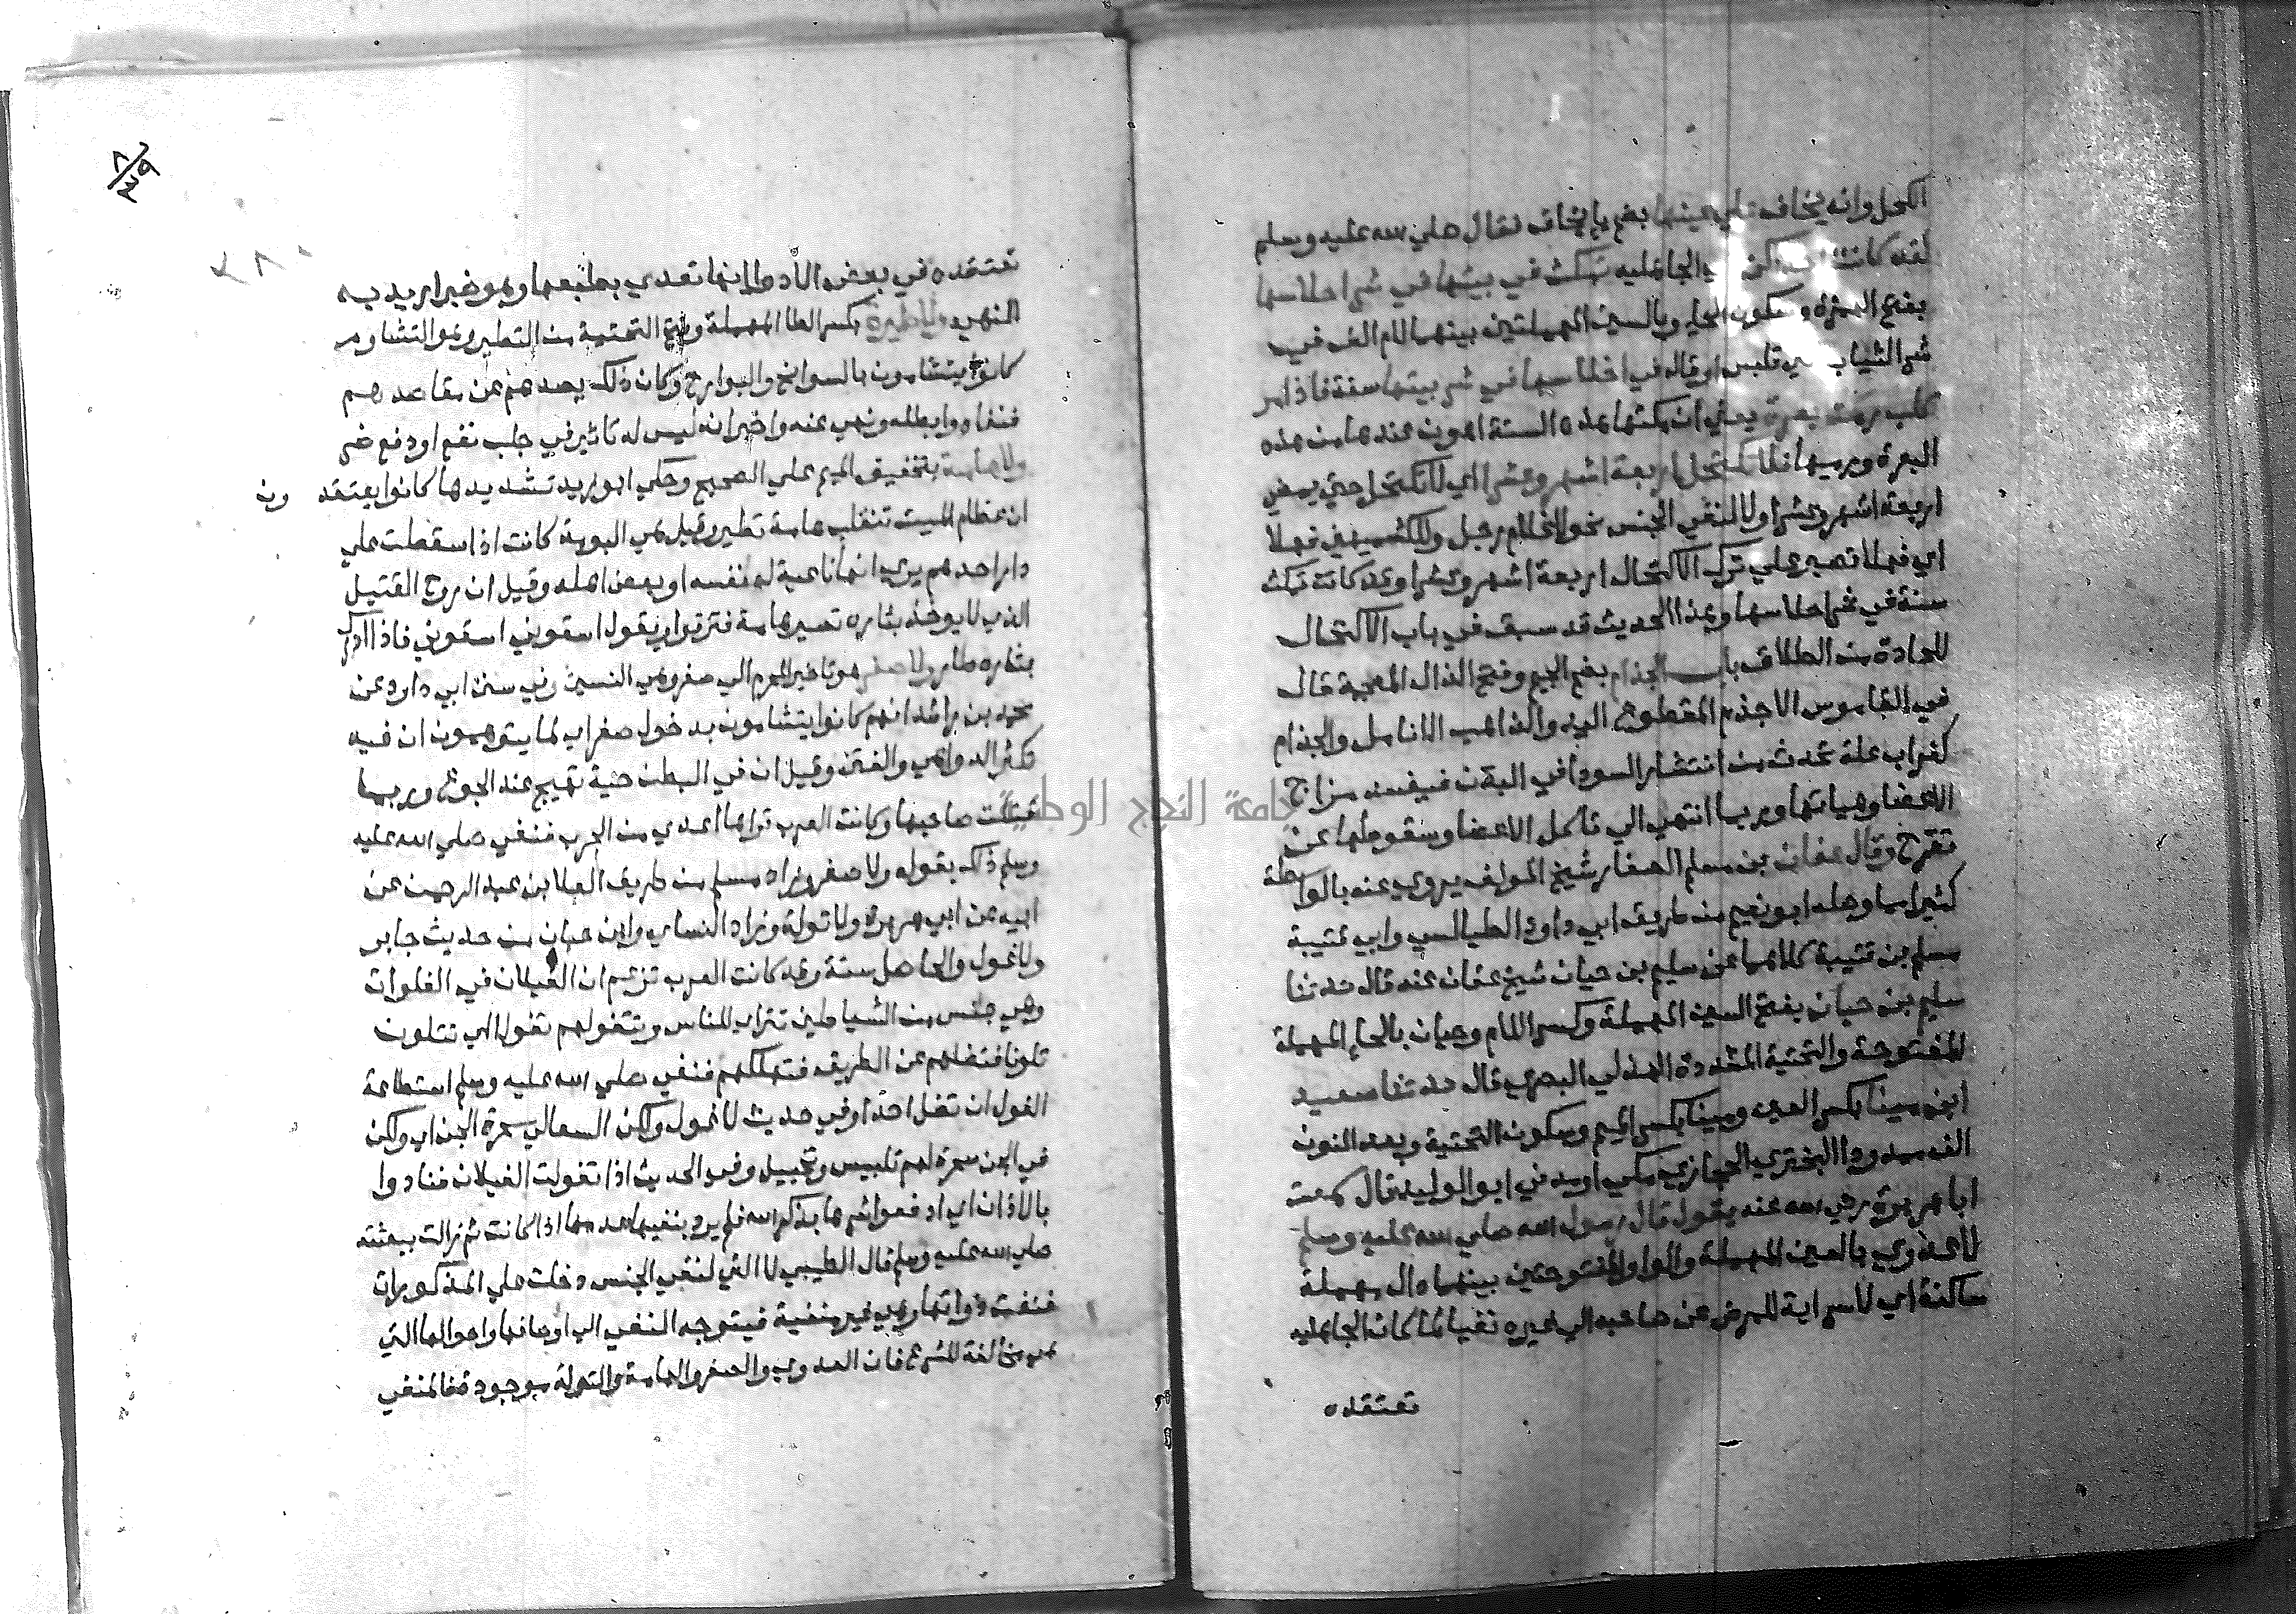 الكحل وانه يخاف علي عينها بضم يا يخاف فقال صلي الله عليه وسلم
لقد كانت احداكن في الجاهليه تمكث في بيتها في شر احلاسها
بفتح الهمزة وسكون الحا وبالسين المهملتين بينهما لام الف في
شر الثياب التي تلبس او قال في احلاسها في شر بيتها سنة فاذا مر
كلب رمت بعرة يعني ان مكثها هذه السنة اهون عندها من هذه
البعرة ورميها فلا تكتحل اربعة اشهر وعشرا اي لا تكتحل حتي يمضي
اربعة اشهر وعشرا ولا لنفي الجنس نحو لا غلام رجل وللكشميهني فهلا
اي فهلا تصبر علي ترك الاكتحال اربعة اشهر وعشرا وقد كانت تمكث
سنة في شر احلاسها وهذا الحديث قد سبق في باب الاكتحال
للحادة من الطلاق باب الجذام بضم الجيم وفتح الذال المعجمة قال
في القاموس الاجذم المقطوع اليد والذاهب الانامل والجذام
كغراب علة تحدث من انتشار السودا في البدن فيفسد مزاج
الاعضا وهياتها وربما انتهي الي تاكل الاعضا وسقوطها عن
تقرح وقال عفان بن مسلم الصفار شيخ المولف يروي عنه بالواسطة
كثيرا مما وصله ابو نعيم من طريق ابي داود الطيالسي وابي قتيبة
مسلم بن قتيبة كلاهما عن سليم بن حيان شيخ عفان عنه قال حدثنا
سليم بن حيان بفتح السين المهملة وكسر اللام وحيان بالحا المهملة
المفتوحة والتحتية المشددة الهذلي البصري قال حدثنا سعيد
ابن مينا بكسر العين ومينا بكسر الميم وسكون التحتية وبعد النون
الف ممدودا البختري الحجازي مكي او مدني ابو الوليد قال سمعت
ابا هريرة رضي الله عنه يقول قال رسول الله صلي الله عليه وسلم
لا عدوي بالعين المهملة والواو المفتوحتين بينهما دال مهملة
ساكنة اي لا سراية للمرض عن صاحبه الي غيره نفيا لما كان الجاهليه
تعتقده
٢٨٠
تعتقده في بعض الادوا انها تعدي بطبعها وهو خبر اريد به
النهي ولا طيرة بكسر الطا المهملة وفتح التحتية من التطير وهو التشاوم
كانوا يتشامون بالسوانح والبوارح وكان ذلك يصدهم عن مقاصدهم
فنفاه وابطله ونهي عنه واخبر انه ليس له تاثير في جلب نفع او دفع ضر
ولا هامة بتخفيف الميم علي الصحيح وحكي ابو زيد تشديدها كانوا يعتقدون
ان عظام الميت تنقلب هامة تطير وقيل هي البومة كانت اذا سقطت علي
دار احدهم يري انها ناعية له نفسه او بعض اهله وقيل ان روح القتيل
الذي لا يوخذ بثاره تصير هامة فتزقوا وتقول اسقوني اسقوني فاذا ادرك
بثاره طار ولا صفر هو تاخير المحرم الي صفر وهي النسي وفي سنن ابي داود عن
محمد بن راشد انهم كانوا يتشامون بدخول صفر اي لما يتوهمون ان فيه
تكثر الدواهي والفتن وقيل ان في البطن حية تهيج عند الجوع وربما
قتلت صاحبها وكانت العرب تراها اعدي من الجرب فنفي صلي الله عليه
وسلم ذلك بقوله ولا صفر وزاد مسلم من طريق العلا بن عبد الرحمن عن
ابيه عن ابي هريرة ولا تولة وزاد النساي وابن حبان من حديث جابر
ولا غول والحاصل ستة وقد كانت العرب تزعم ان الغيلان في الفلوات
وهي جنس من الشياطين تتراي للناس وتتغولهم تغولا اي تتلون
تلونا فتضلهم عن الطريق فتهلكهم فنفي صلي الله عليه وسلم استطاعة
الغول ان تضل احدا وفي حديث لا غول ولكن السعالي سحرة الجن اي ولكن
في الجن سحرة لهم تلبيس وتخييل وفي الحديث اذا تغولت الغيلان فنادوا
بالاذان اي ادفعوا شرها بذكر الله فلم يرد بنفيها عدمها اذا كانت ثم زالت ببعثته
صلي الله عليه وسلم قال الطيبي لا التي لنفي الجنس دخلت علي المذكورات
فنفت ذواتها وهي غير منفية فيتوجه النفي الي اوصافها واحوالها التي
هي مخالفة للشرع فان العدوي والصفر والهامة والتولة موجودة فالمنفي
جامعة النجاح الوطنية